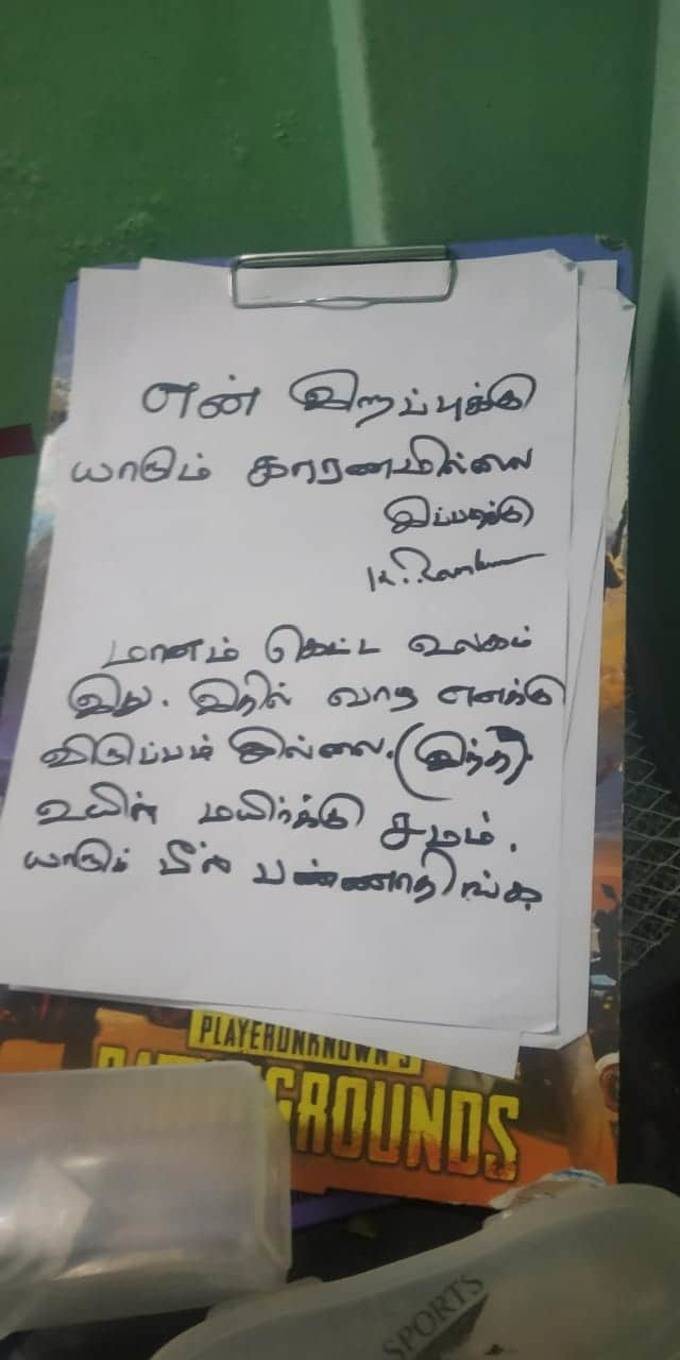 என் இறப்புக்கு
யாரும் காரணமில்லை
இப்படிக்கு
மானம் கெட்ட உலகம்
இது. இதில் வாழ எனக்கு
விருப்பம் இல்லை. (இந்த).
உயிர் மயிர்க்கு சமம்.
யாரும் பீல் பண்ணாதிங்க
PLAYERUNKNOWN'S
BATTLEGROUNDS
SPORTS